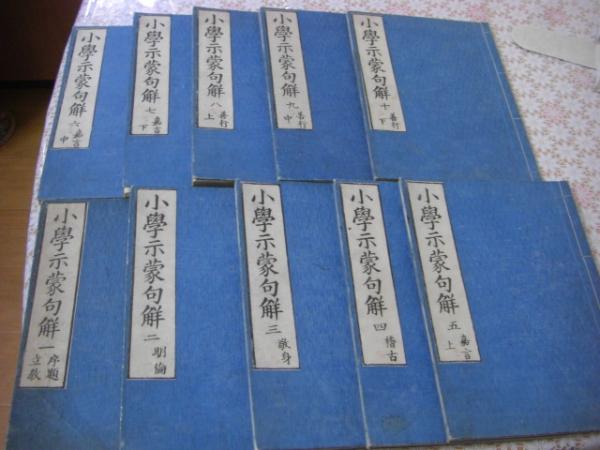 小學示蒙句解 六 嘉言 中
小學示蒙句解 七 嘉言 下
小學示蒙句解 八 善行 上
小學示蒙句解 九 善行 中
小學示蒙句解 十 善行 下
小學示蒙句解 一 序題 立敎
小學示蒙句解 二 明倫
小學示蒙句解 三 敬身
小學示蒙句解 四 稽古
小學示蒙句解 五 嘉言 上